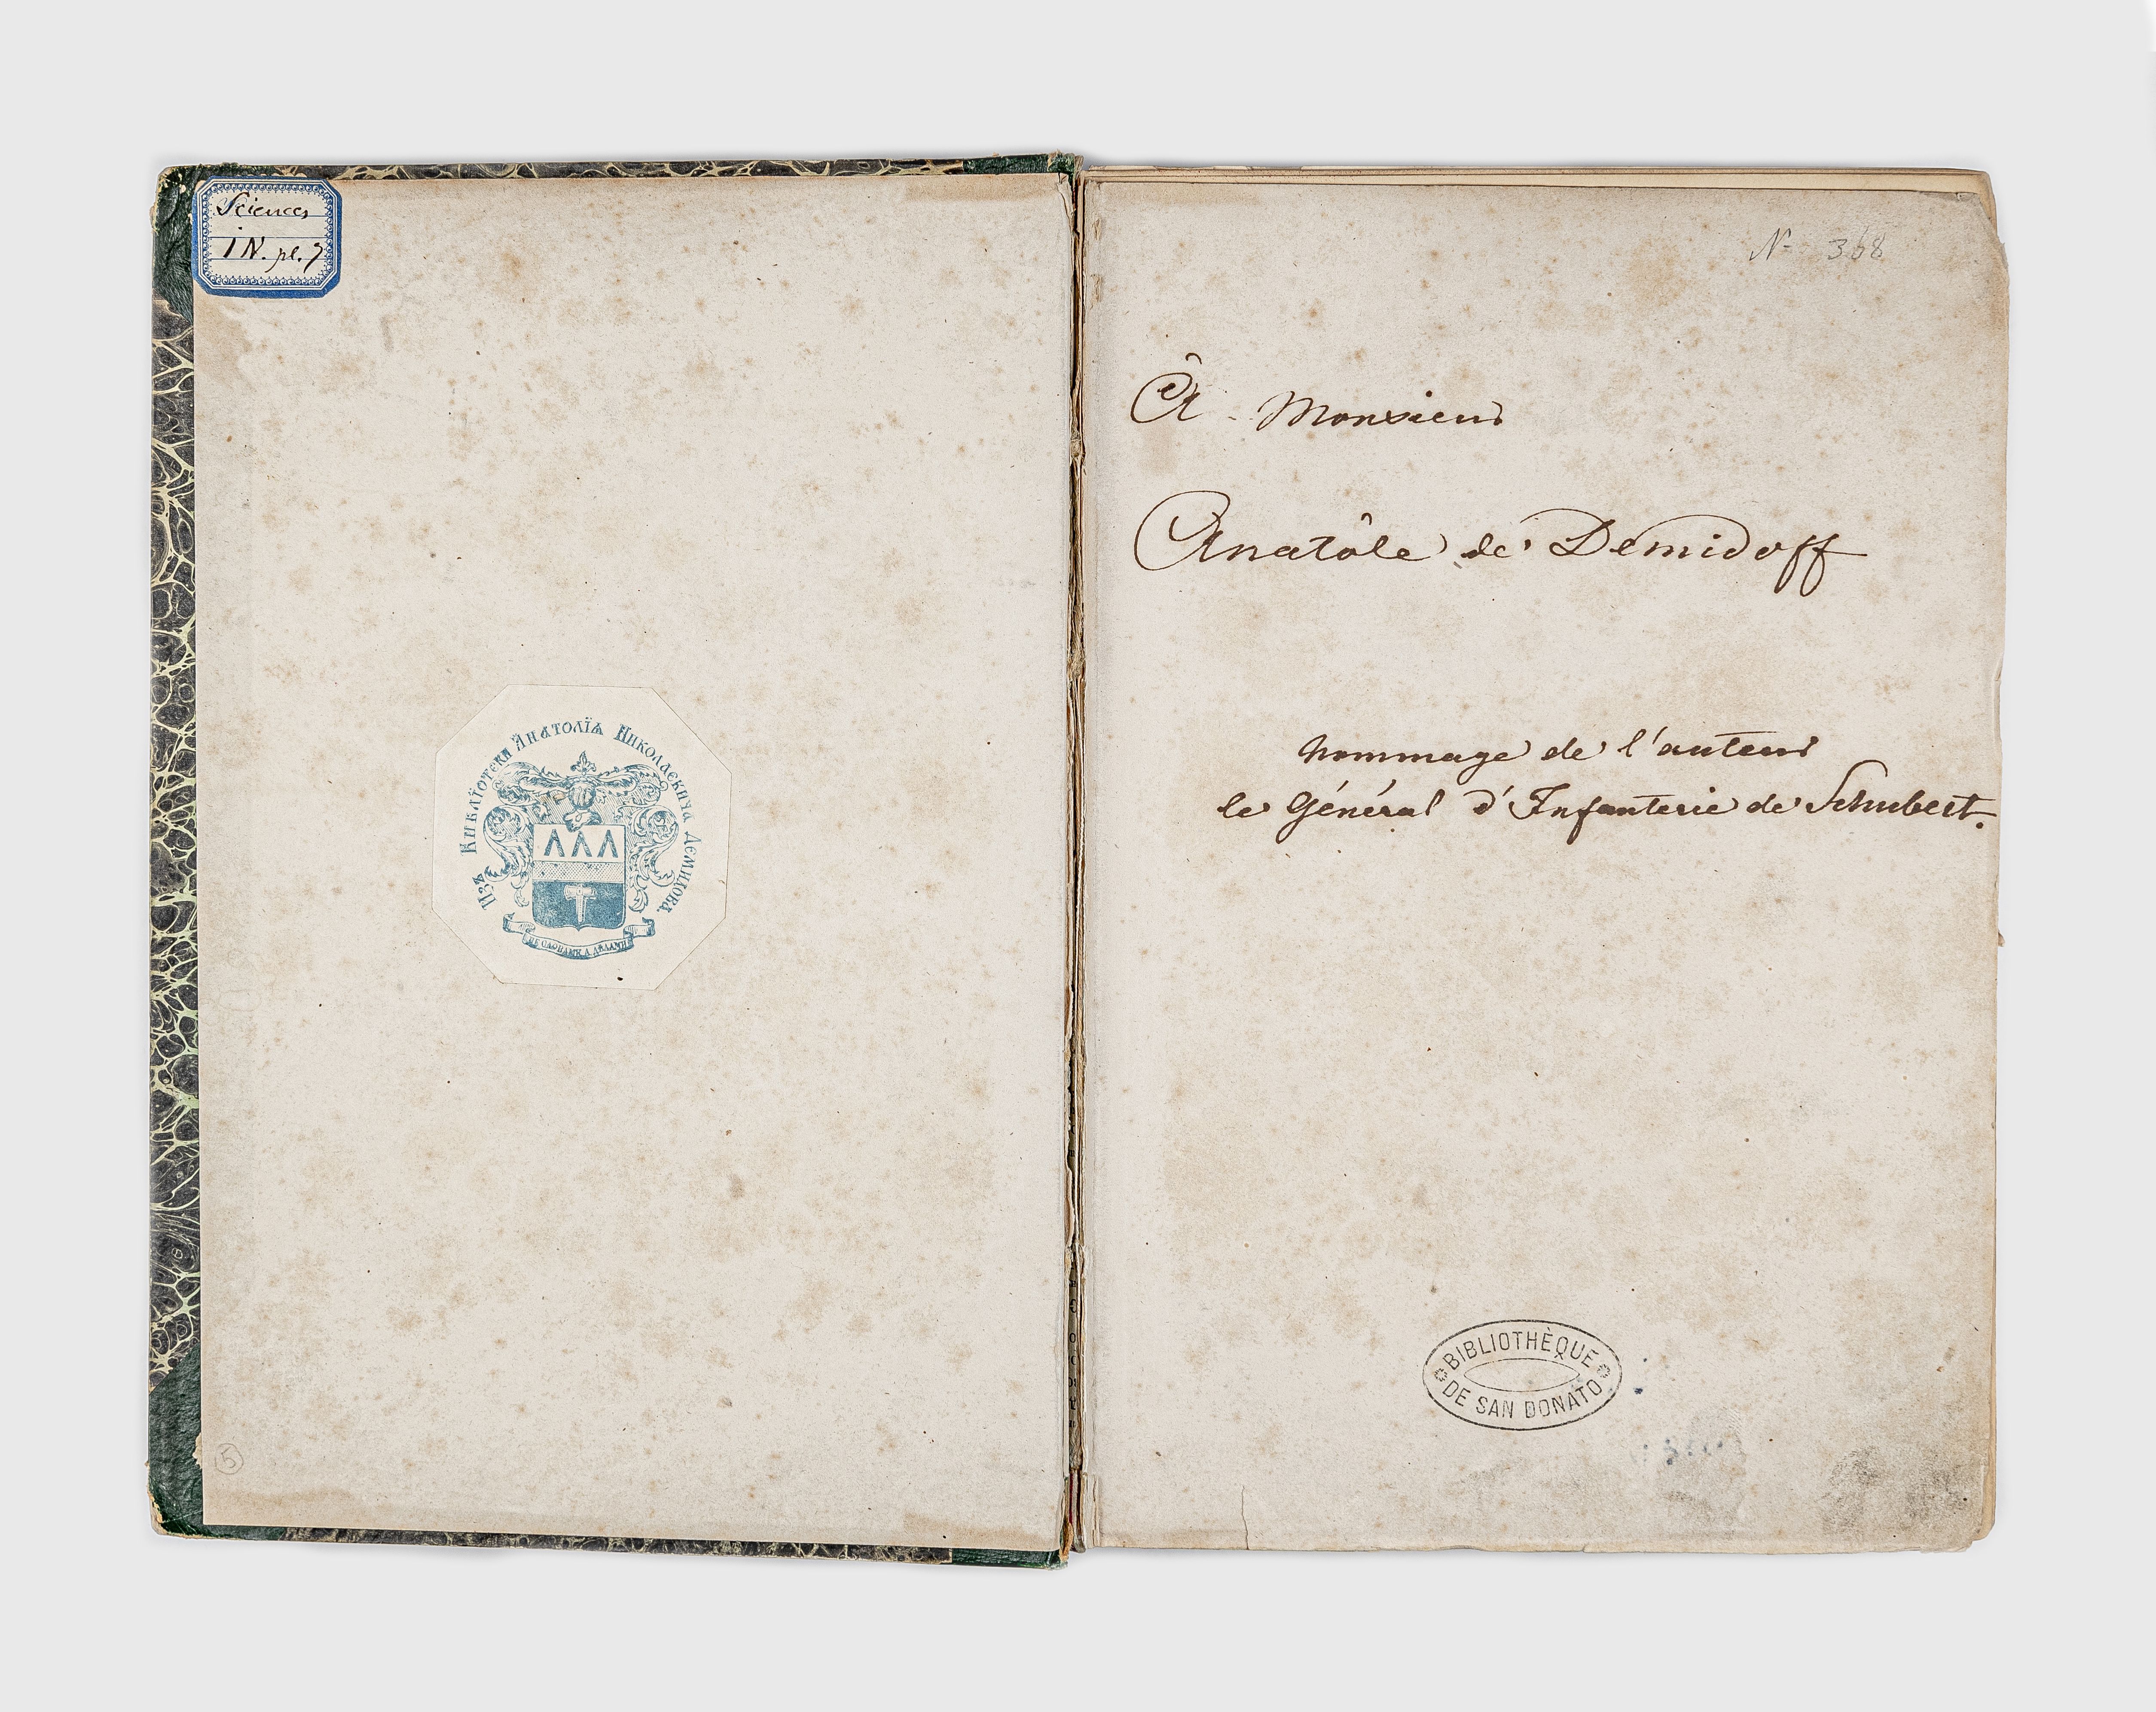 Sciences
IN. pl. 7
Изъ Библіотеки Анатолія Николаевича Демидова.
НЕ СЛОВАМИ А ДѢЛАМИ
5
N- 368
À Monsieur
Anatôle de Demidoff
hommage de l'auteur
le Général d'Infanterie de Schubert.
BIBLIOTHÈQUE
DE SAN DONATO